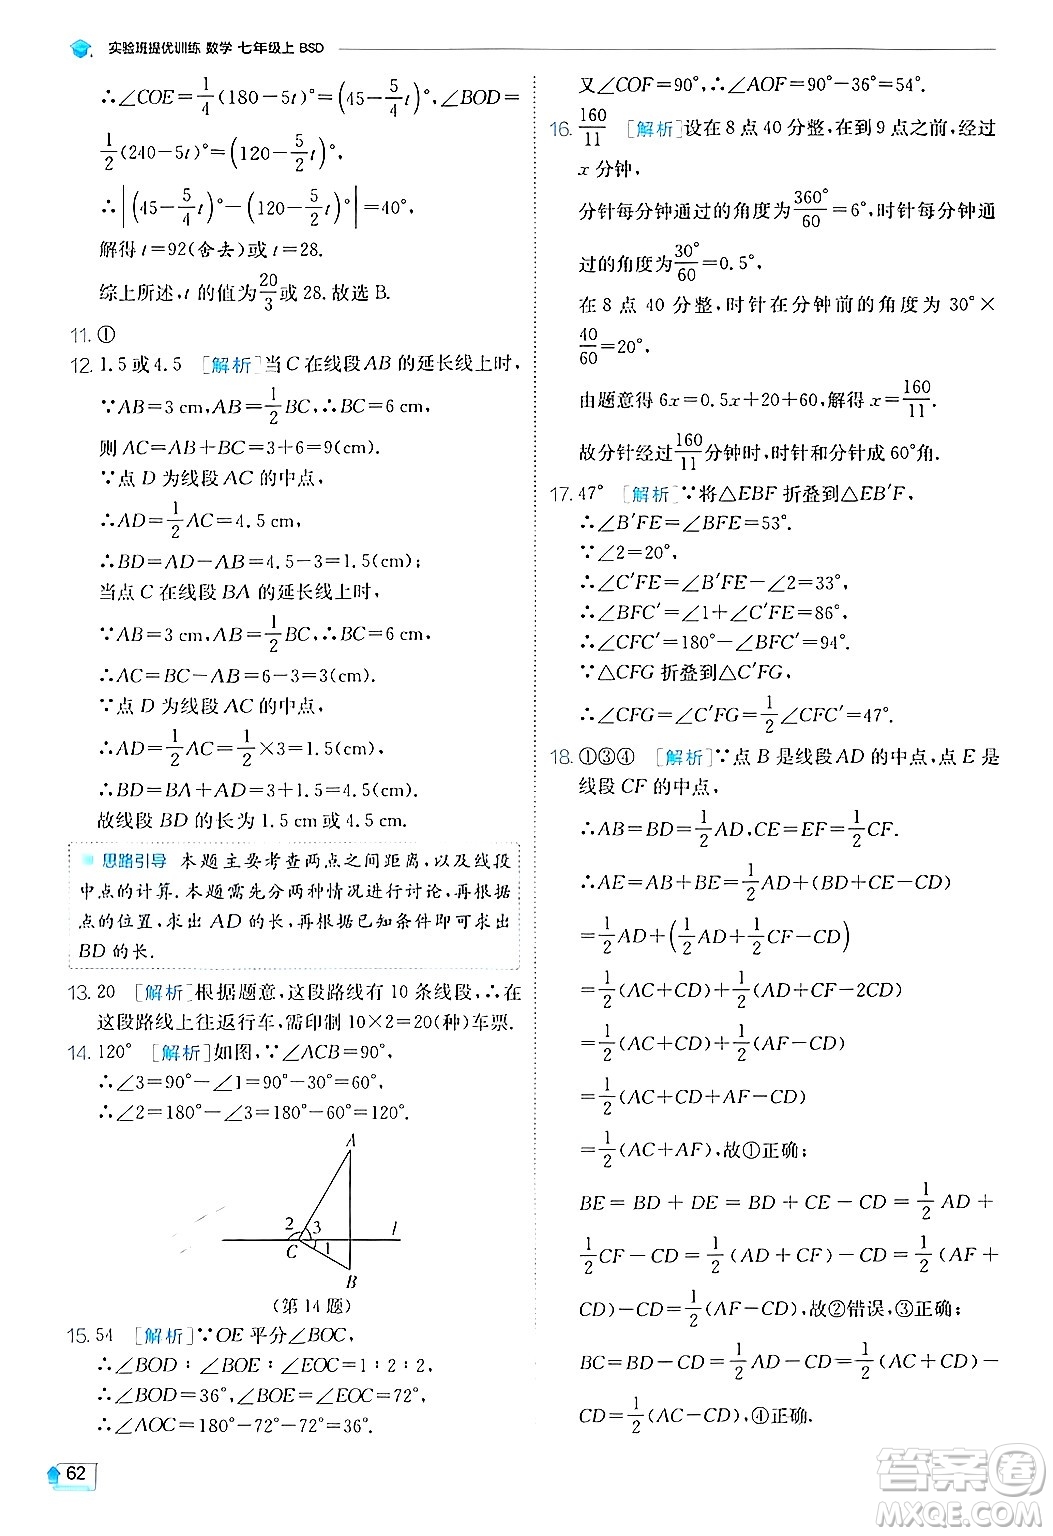 实验班提优训练 数学 七年级上 BSD
∴∠COE=1/4(180-5t)°=(45-5/4t)°,∠BOD=
1/2(240-5t)°=(120-5/2t)°,
∴|(45-5/4t)°-(120-5/2t)°|=40°,
解得 t=92(舍去)或 t=28.
综上所述,t 的值为20/3或 28.故选 B.
11. ①
12. 1.5或4.5 [解析]当 C 在线段AB 的延长线上时,
∵AB=3 cm,AB=1/2BC,∴BC=6 cm,
则 AC=AB+BC=3+6=9(cm).
∵点 D 为线段 AC 的中点,
∴AD=1/2AC=4.5 cm,
∴BD=AD-AB=4.5-3=1.5(cm);
当点 C 在线段 BA 的延长线上时,
∵AB=3 cm,AB=1/2BC,∴BC=6 cm,
∴AC=BC-AB=6-3=3(cm).
∵点 D 为线段 AC 的中点,
∴AD=1/2AC=1/2×3=1.5(cm),
∴BD=BA+AD=3+1.5=4.5(cm).
故线段 BD 的长为 1.5 cm 或 4.5 cm.
思路引导 本题主要考查两点之间距离,以及线段
中点的计算.本题需先分两种情况进行讨论,再根据
点的位置,求出 AD 的长,再根据已知条件即可求出
BD 的长.
13. 20 [解析]根据题意,这段路线有 10 条线段,∴在
这段路线上往返行车,需印制 10×2=20(种)车票.
14. 120° [解析]如图,∵∠ACB=90°,
∴∠3=90°-∠1=90°-30°=60°,
∴∠2=180°-∠3=180°-60°=120°.
A
2 3 l
C 1
B
(第 14 题)
15. 54 [解析]∵OE 平分∠BOC,
∴∠BOD∶∠BOE∶∠EOC=1∶2∶2,
∴∠BOD=36°,∠BOE=∠EOC=72°,
∴∠AOC=180°-72°-72°=36°.
62
又∠COF=90°,∴∠AOF=90°-36°=54°.
16. 160/11 [解析]设在 8 点 40 分整,在到 9 点之前,经过
x 分钟,
分针每分钟通过的角度为360°/60=6°,时针每分钟通
过的角度为30°/60=0.5°,
在 8 点 40 分整,时针在分钟前的角度为 30°×
40/60=20°,
由题意得 6x=0.5x+20+60,解得 x=160/11.
故分针经过160/11分钟时,时针和分针成 60°角.
17. 47° [解析]∵将△EBF 折叠到△EB′F,
∴∠B′FE=∠BFE=53°.
∵∠2=20°,
∴∠C′FE=∠B′FE-∠2=33°,
∴∠BFC′=∠1+∠C′FE=86°,
∴∠CFC′=180°-∠BFC′=94°.
∵△CFG 折叠到△C′FG,
∴∠CFG=∠C′FG=1/2∠CFC′=47°.
18. ①③④ [解析]∵点 B 是线段 AD 的中点,点 E 是
线段 CF 的中点,
∴AB=BD=1/2AD,CE=EF=1/2CF.
∴AE=AB+BE=1/2AD+(BD+CE-CD)
=1/2AD+(1/2AD+1/2CF-CD)
=1/2(AC+CD)+1/2(AD+CF-2CD)
=1/2(AC+CD)+1/2(AF-CD)
=1/2(AC+CD+AF-CD)
=1/2(AC+AF),故①正确;
BE=BD+DE=BD+CE-CD=1/2AD+
1/2CF-CD=1/2(AD+CF)-CD=1/2(AF+
CD)-CD=1/2(AF-CD),故②错误,③正确;
BC=BD-CD=1/2AD-CD=1/2(AC+CD)-
CD=1/2(AC-CD),④正确.
答案圈
MXQE.COM